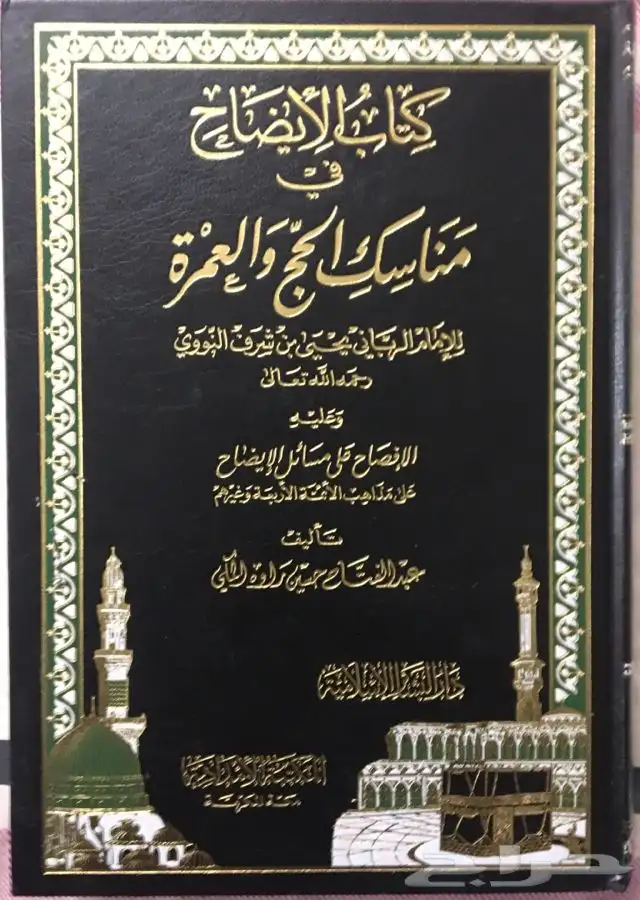 كِتَابُ الْإِيضَاحِ
فِي
مَنَاسِكِ الحَجِّ وَالعُمْرَة
للإمَام الرباني يحيَى بن شرف النَّوَوي
رحمه الله تعالى
وَعَليْهِ
الإفصاح على مسائل الإيضاح
عَلى مَذاهِب الأئمّة الأربَعة وَغيْرهم
تأليف
عبد الفتاح حسين راوه المكي
دَار البَشَائر الإسْلاميَّة
المكتبة الإمدادية
مكة المكرمة
حراج